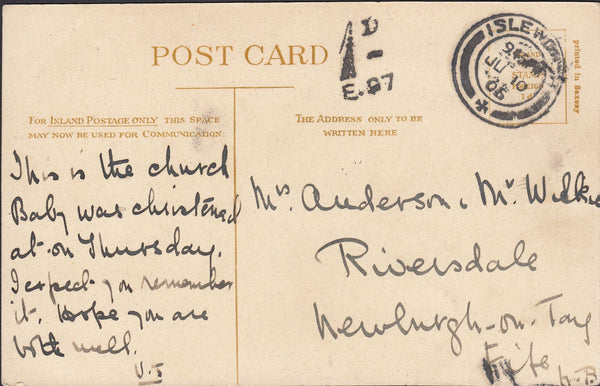 POST CARD
1D
E.97
ISLEWORTH
JU 10
05
STAMP
printed in Saxony
FOR INLAND POSTAGE ONLY THIS SPACE
MAY NOW BE USED FOR COMMUNICATION.
THE ADDRESS ONLY TO BE
WRITTEN HERE
This is the church
Baby was christened
at on Thursday.
I expect you remember
it. Hope you are
both well.
Mrs. Anderson & Mr Wilkie
Riversdale
Newburgh-on-Tay
Fife
N.B